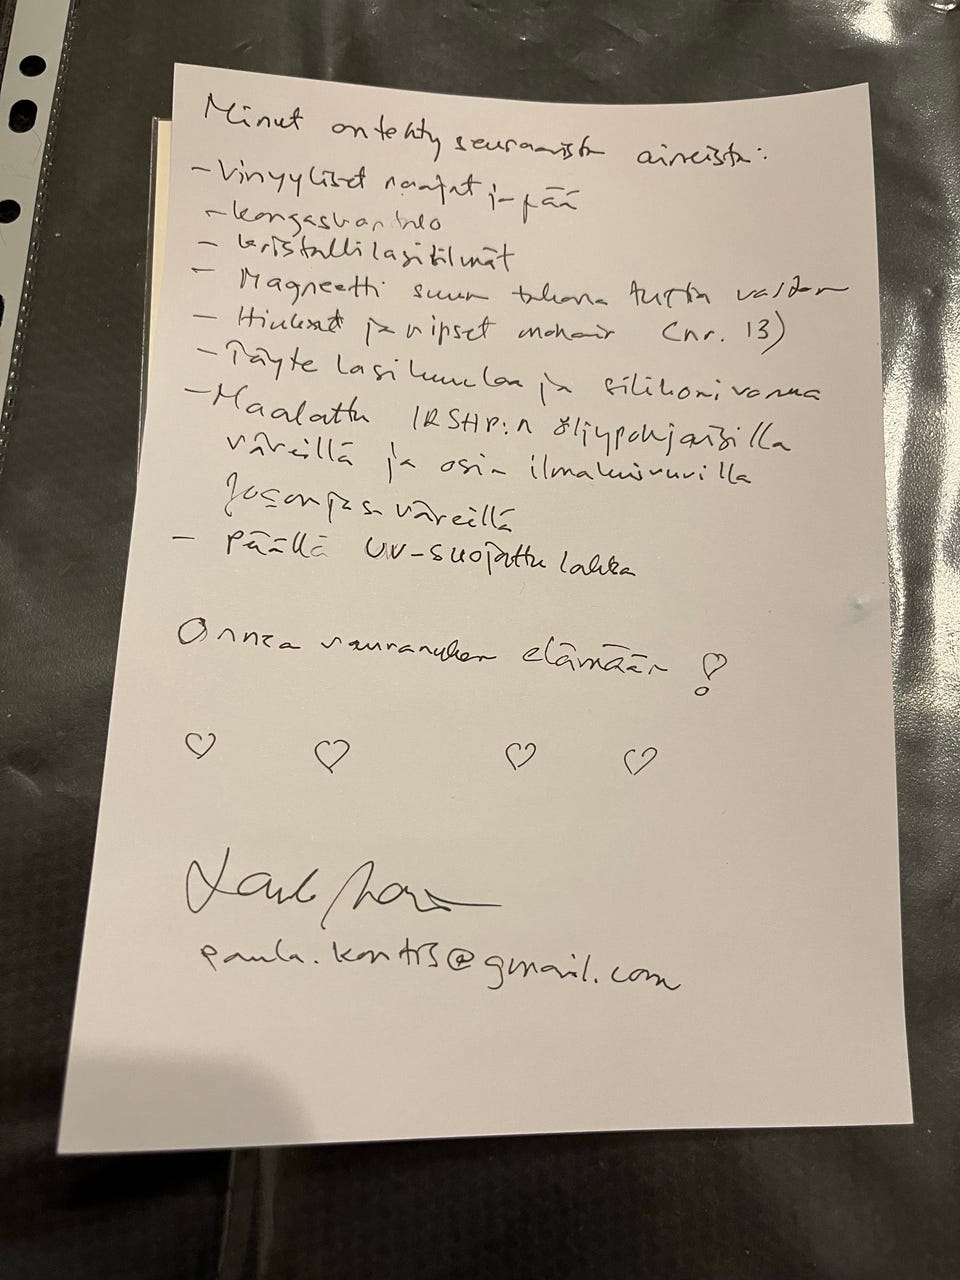 Minut on tehty seuraavista aineista:
- Vinyyliset raajat ja pää
- kangasvartalo
- kristallilasisilmät
- Magneetti suun takana tuttia varten
- Hiukset ja ripset mohair (nr. 13)
- Täyte lasikuulaa ja silikonivanua
- Maalattu IRSHP:n öljypohjaisilla
väreillä ja osin ilmakuivuvilla
Josonja väreillä
- Päällä UV-suojattu lakka
Onnea vauvanuken elämään!
♡ ♡ ♡ ♡
@gmail.com